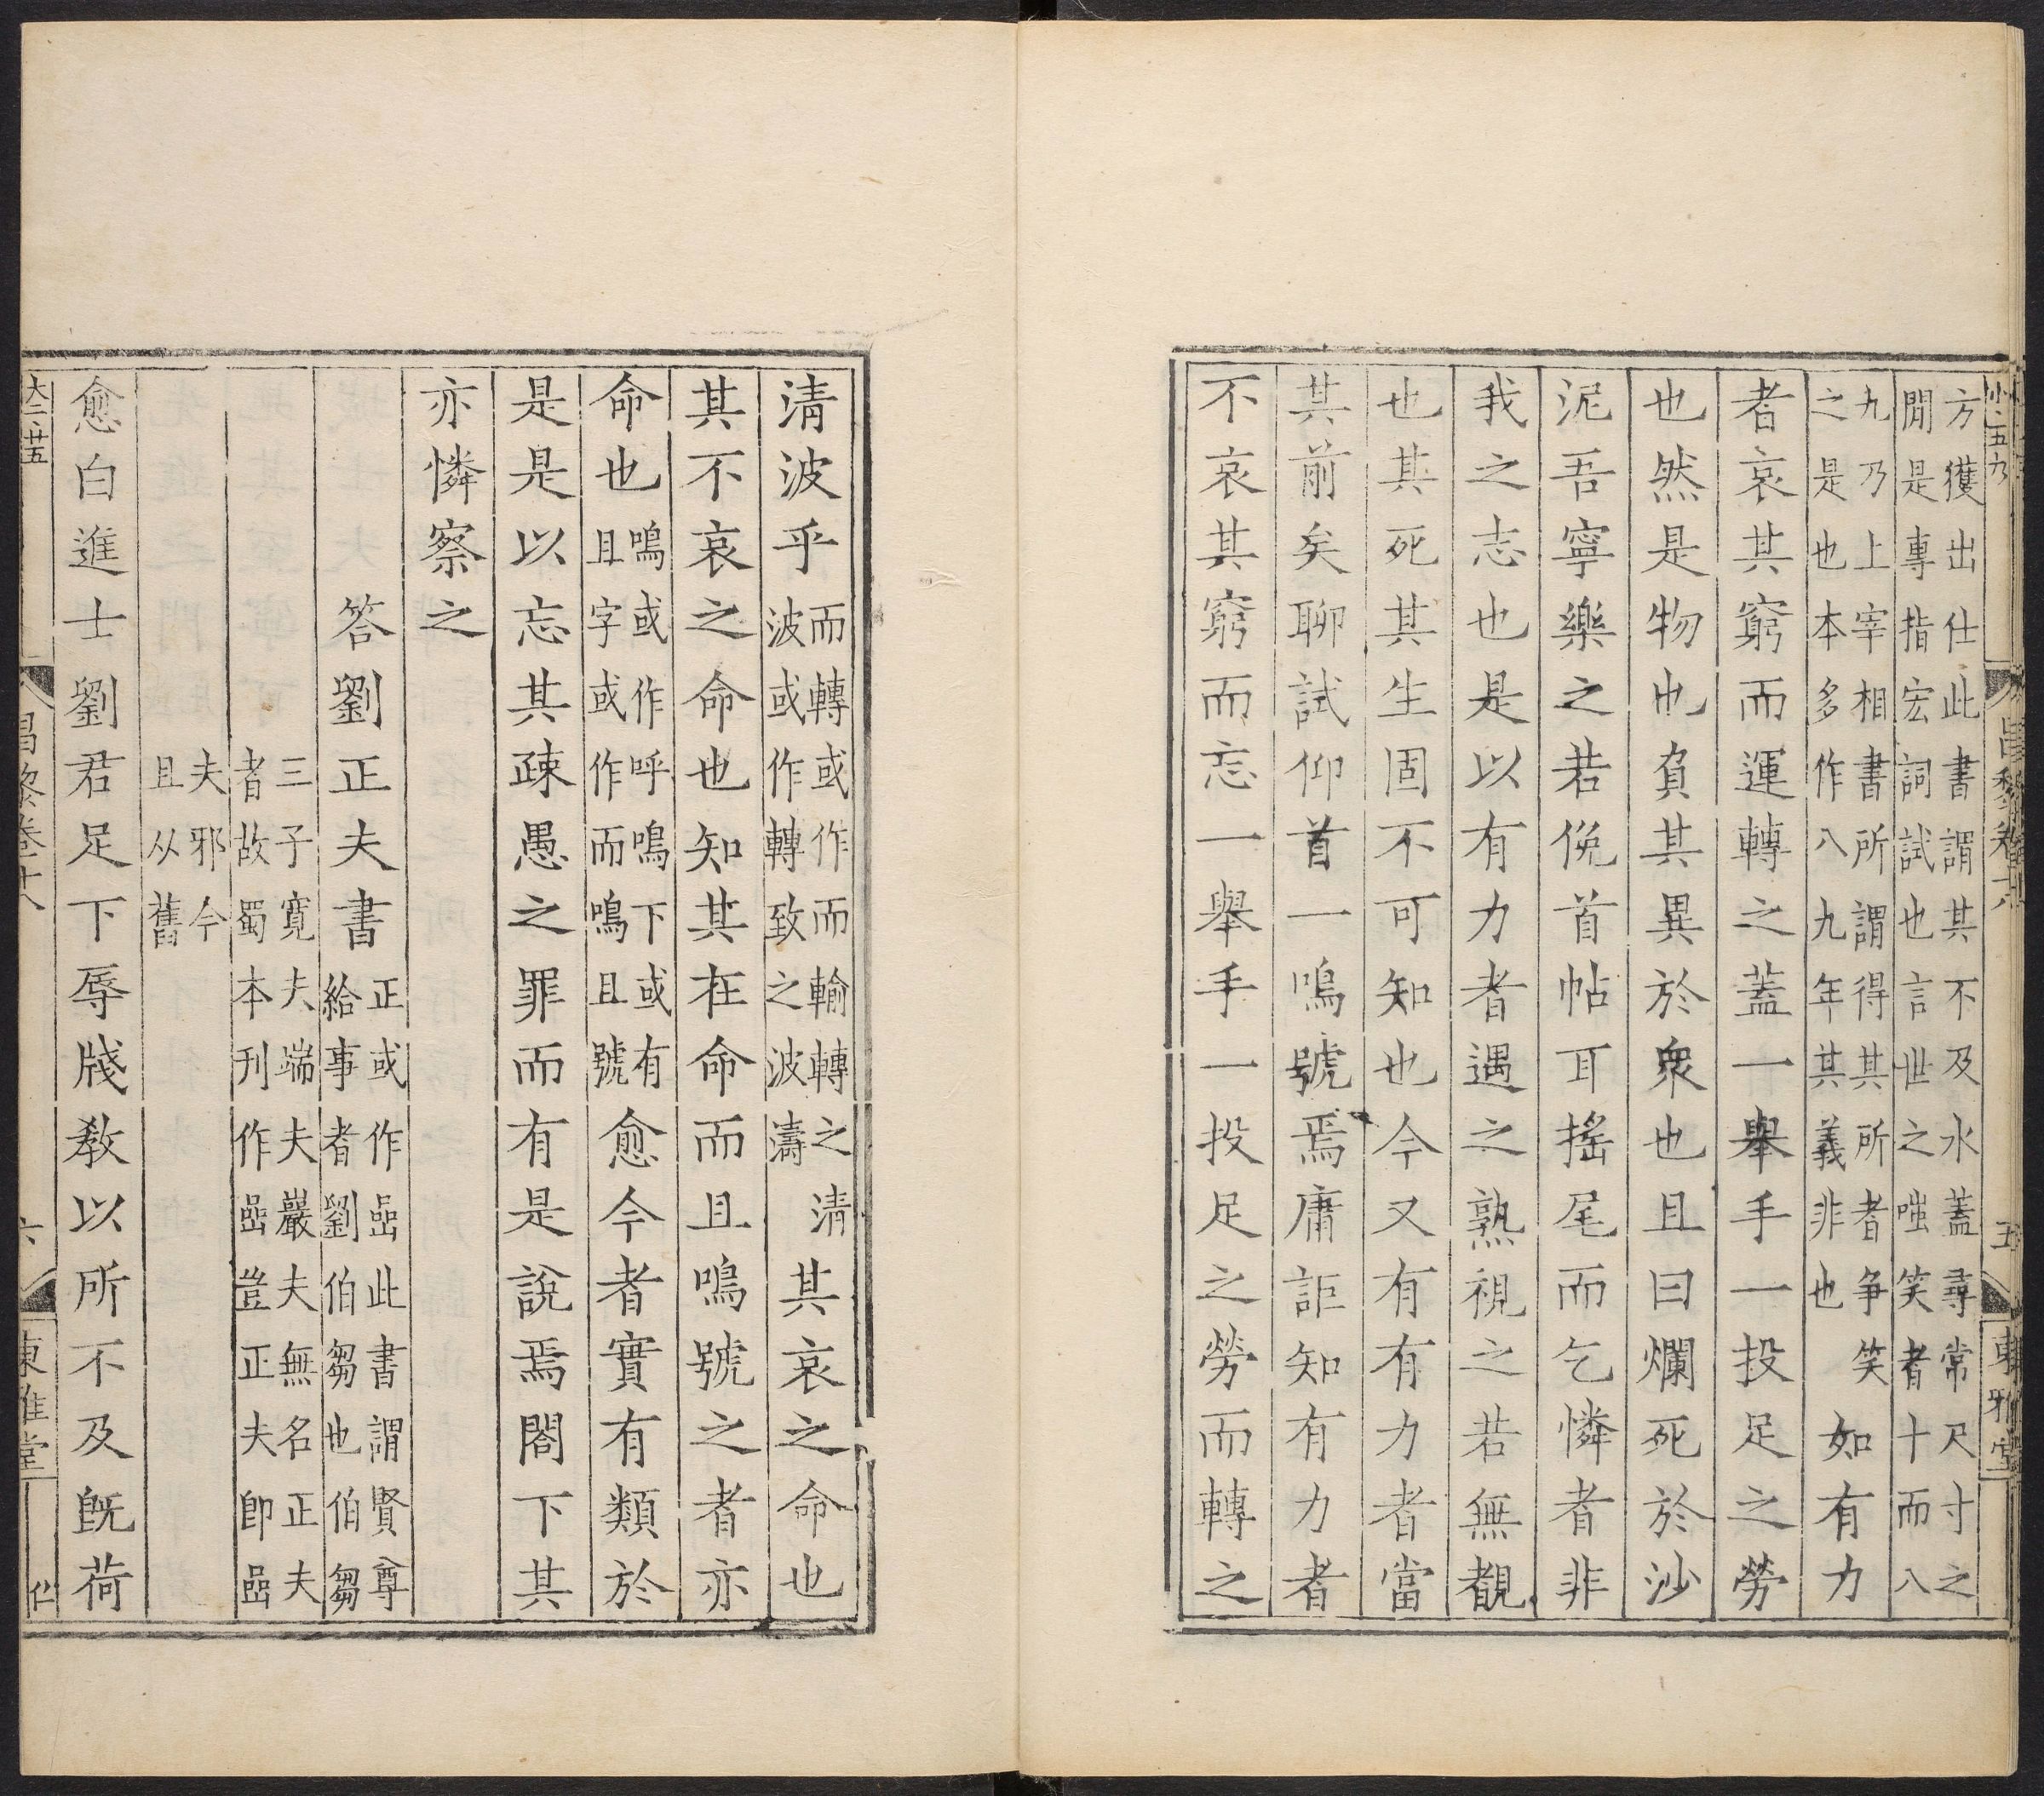 小二五九
昌黎卷十八
五
東雅堂
方獲出仕此書謂其不及水蓋尋常尺寸之
閒是專指宏詞試也言世之嗤笑者十而八
九乃上宰相書所謂得其所者爭笑
之是也本多作八九年其義非也
如有力
者哀其窮而運轉之蓋一舉手一投足之勞
也然是物也負其異於衆也且曰爛死於沙
泥吾寧樂之若俛首帖耳搖尾而乞憐者非
我之志也是以有力者遇之熟視之若無覩
也其死其生固不可知也今又有有力者當
其前矣聊試仰首一鳴號焉庸詎知有力者
不哀其窮而忘一舉手一投足之勞而轉之
清波乎
而轉或作而輸轉之清
波或作轉致之波濤
其哀之命也
其不哀之命也知其在命而且鳴號之者亦
命也
鳴或作呼鳴下或有
且字或作而鳴且號
愈今者實有類於
是是以忘其疎愚之罪而有是說焉閤下其
亦憐察之
答劉正夫書
正或作嵒此書謂賢尊
給事者劉伯芻也伯芻
三子寬夫端夫巖夫無名正夫
者故蜀本刊作嵒豈正夫卽嵒
夫邪今
且从舊
愈白進士劉君足下辱牋教以所不及旣荷
大二廿五
昌黎卷十八
六
東雅堂